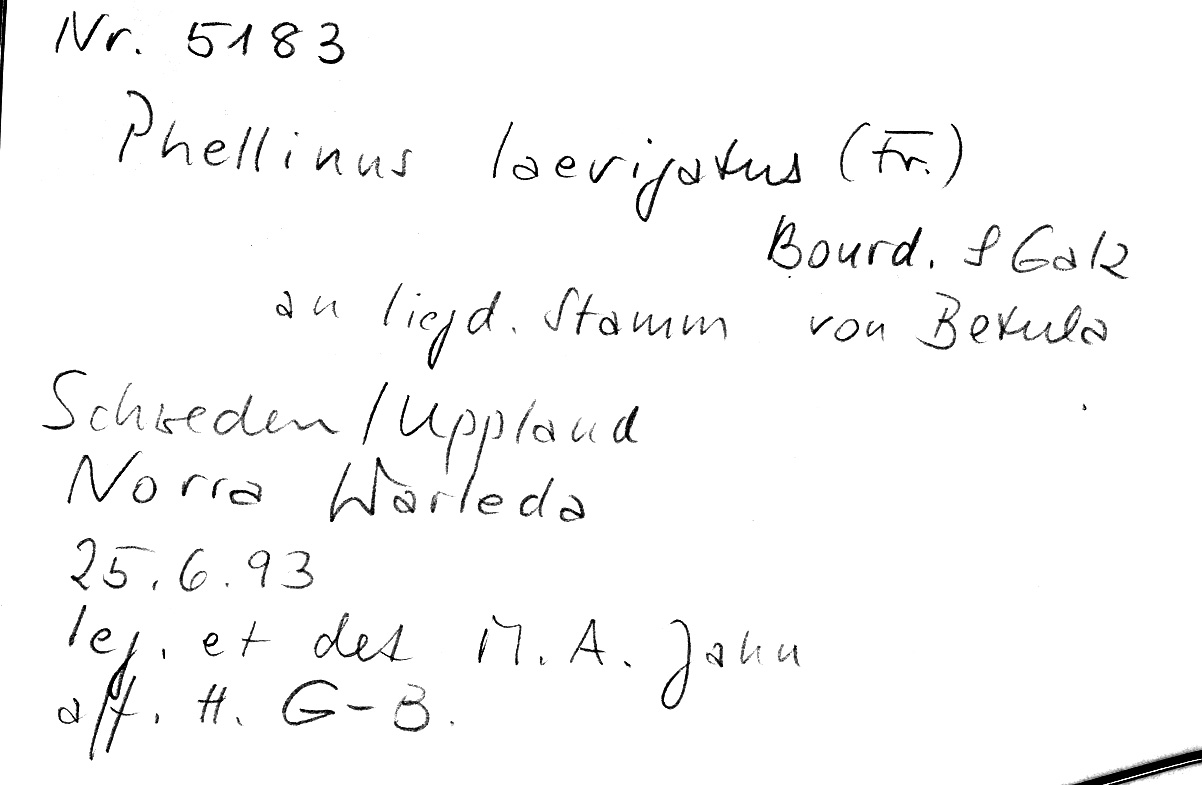 Nr. 5183
Phellinus laevigatus (Fr.)
Bourd. & Galz
an liegd. Stamm von Betula
Schweden/Uppland
Norra Warleda
25.6.93
leg. et det M. A. Jahn
aff. H. G-B.